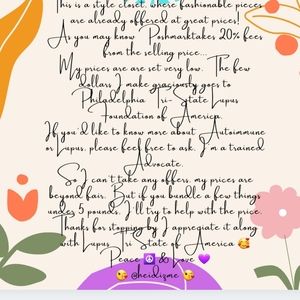 This is a style closet, where fashionable pieces
are already offered at great prices!
As you may know Poshmarktakes 20% fees
from the selling price...
My prices are are set very low. The few
dollars I make graciously goes to
Philadelphia Tri-State Lupus
Foundation of America.
If you'd like to know more about Autoimmune
or Lupus, please feel free to ask. I'm a trained
Advocate.
So I can't take any offers, my prices are
beyond fair. But if you bundle a few things
under 5 pounds, I'll try to help with the price.
Thanks for stopping by I appregiate it along
with Lupus Tri State of America 🥰
Peace ☮️ & Love 💜
🥰 @heidizme 🥰